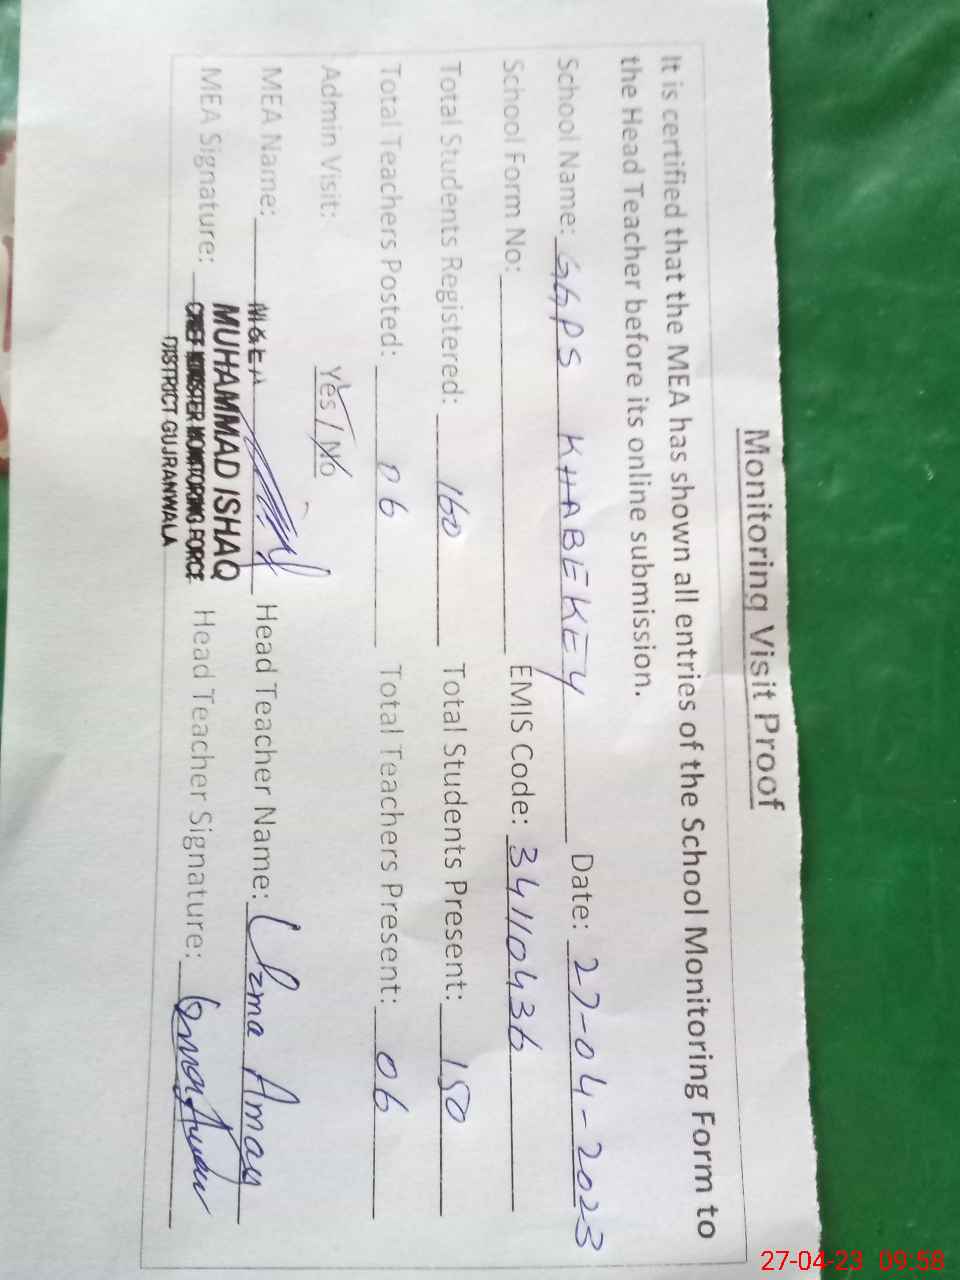 Monitoring Visit Proof
It is certified that the MEA has shown all entries of the School Monitoring Form to
the Head Teacher before its online submission.
School Name: GGPS KHABEKEY Date: 27-04-2023
School Form No: EMIS Code: 34110436
Total Students Registered: 160 Total Students Present: 150
Total Teachers Posted: 06 Total Teachers Present: 06
Admin Visit: Yes / No
MEA Name: M&EA Head Teacher Name: Uzma
MUHAMMAD ISHAQ
MEA Signature: CHIEF MINISTER MONITORING FORCE Head Teacher Signature:
DISTRICT GUJRANWALA
27-04-23 09:58